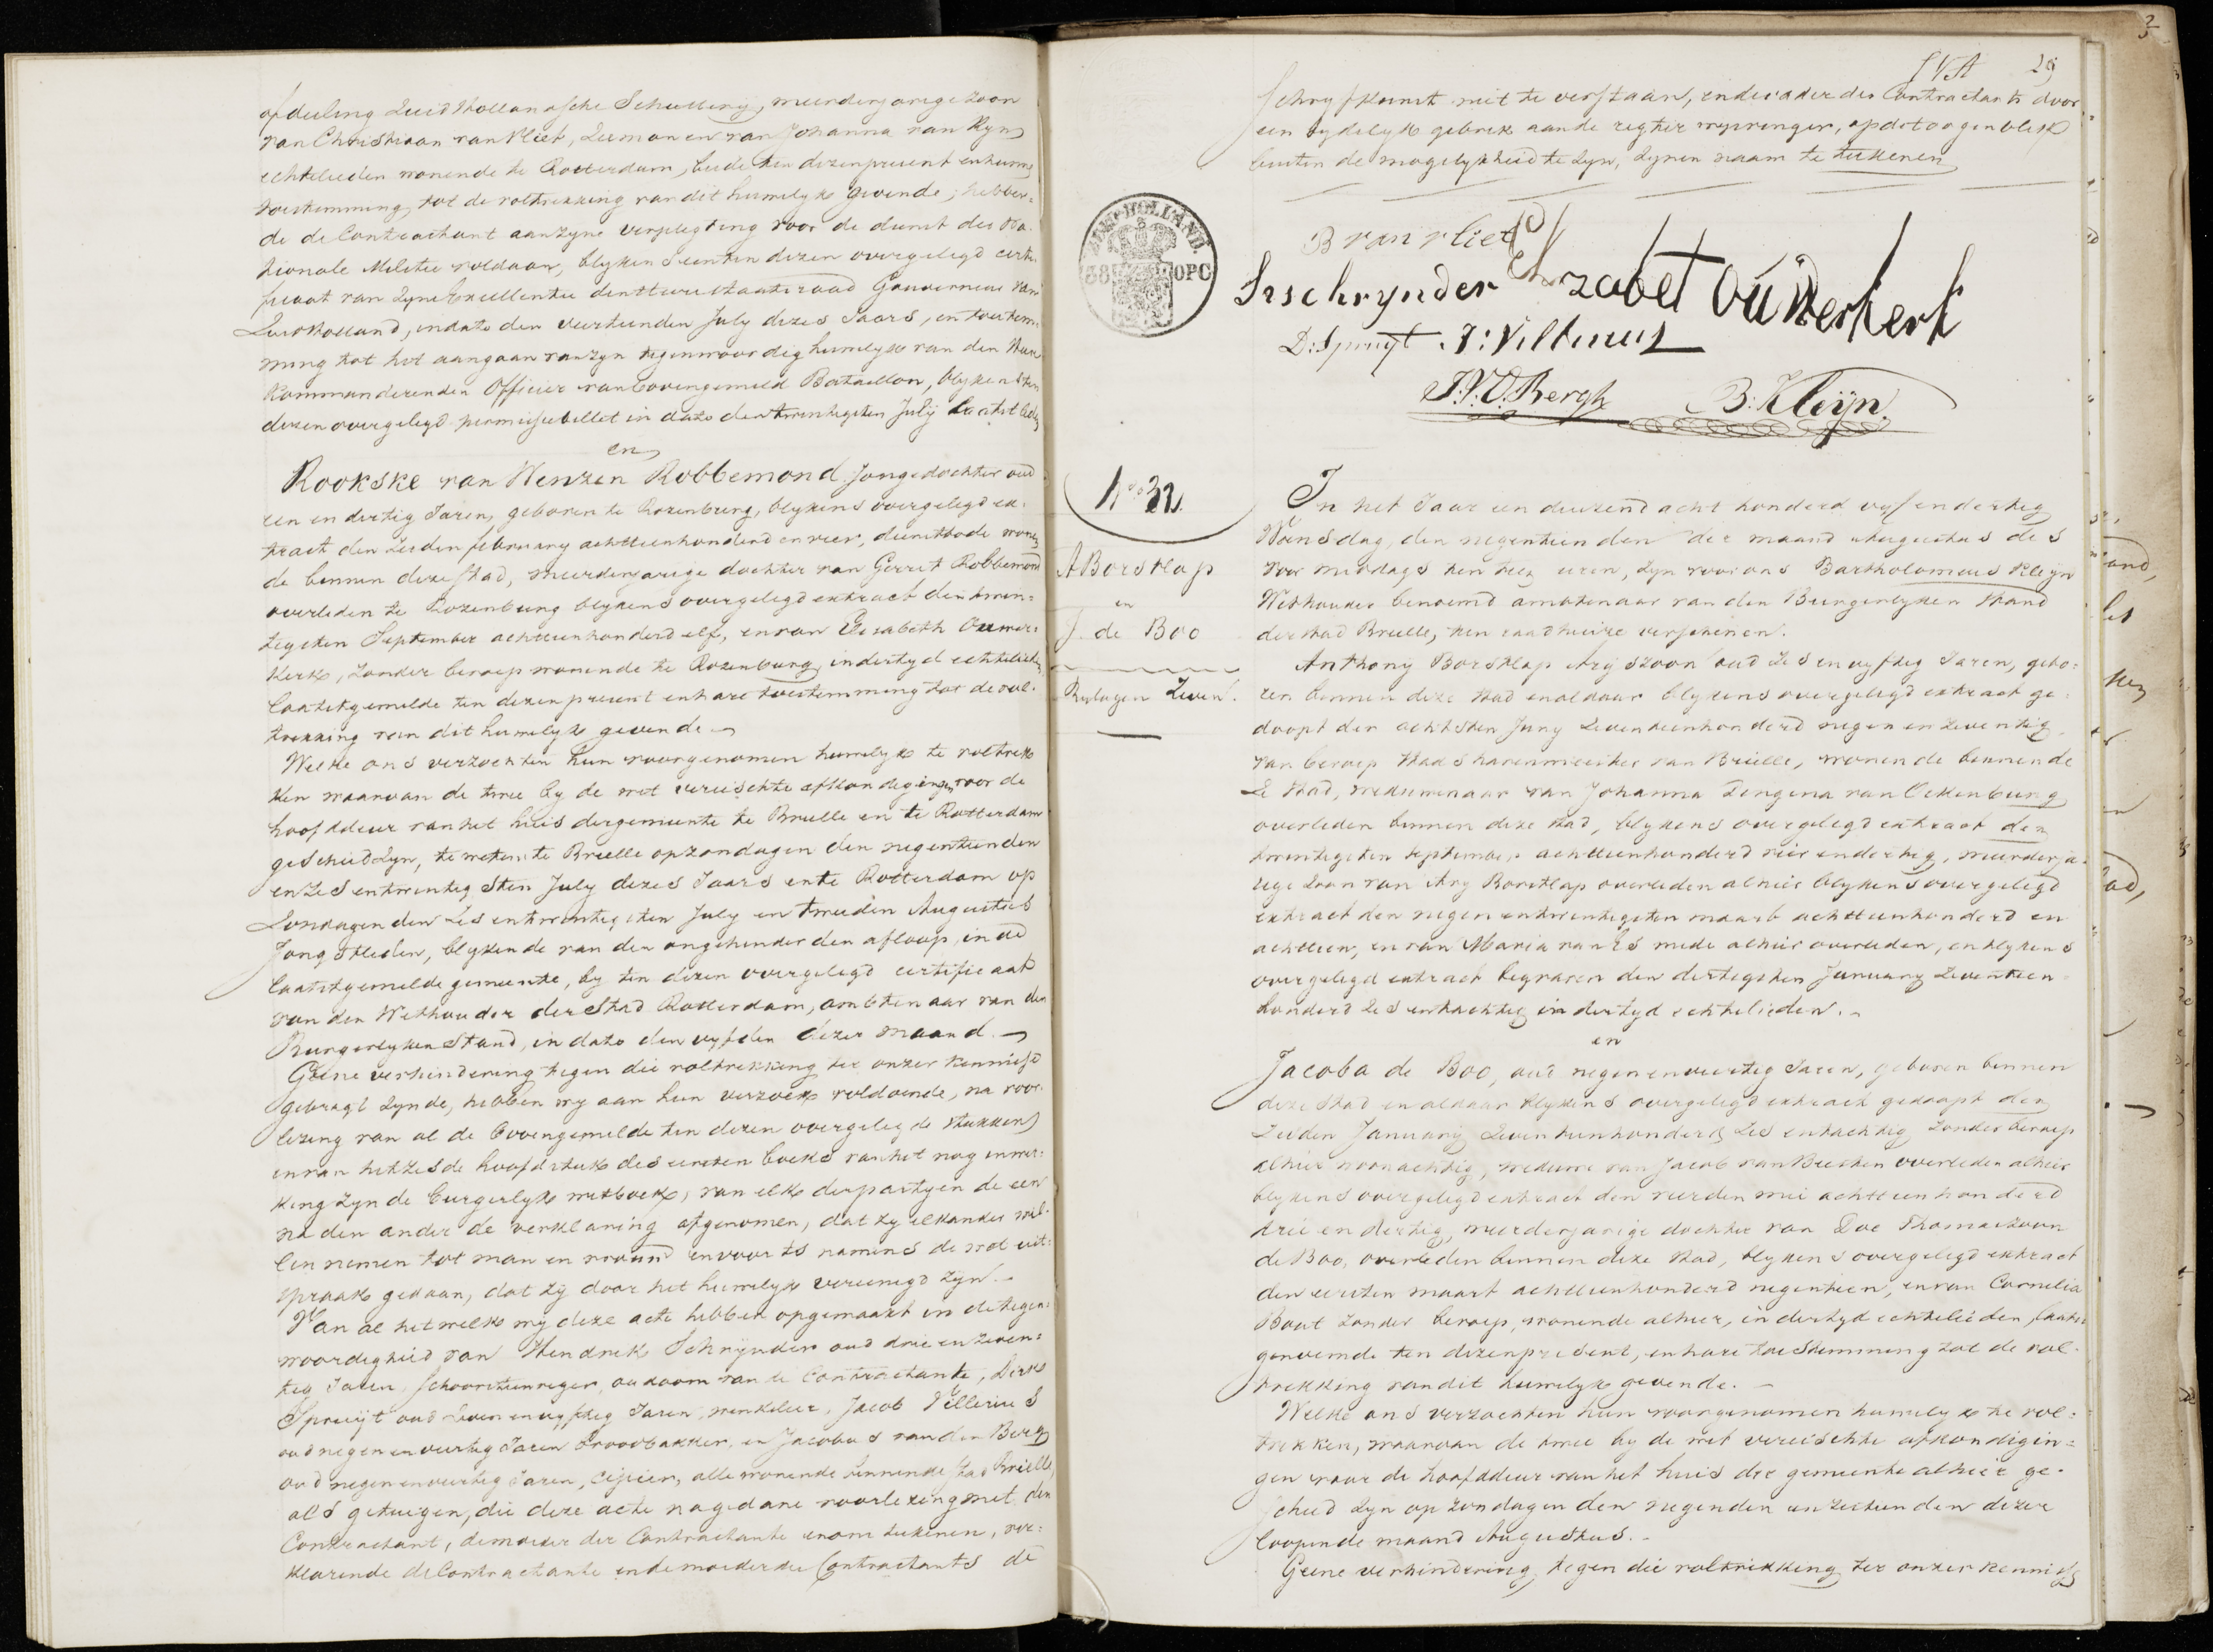 afdeeling Zuid Hollandsche Schutterij, meerderjarige zoon
van Christiaan van Vliet, Zeeman en van Johanna van Ryn
echtelieden wonende te Rotterdam, beide ten dezen present en hunne
toestemming tot de voltrekking van dit huwelyk gevende; hebben-
de de Contractant aan zyne verpligting voor de dienst der Na-
tionale Militie voldaan, blykens een ten dezen overgelegd certi-
ficaat van Zyne Excellentie den Heere Staatsraad Gouverneur van
Zuid Holland, in dato den veertienden July dezes Jaars, en toestem-
ming tot het aangaan van zyn tegenwoordig huwelyk van den Heer
Kommanderenden Officier van bovengemeld Bataillon, blykens ten
dezen overgelegd permissiebillet in dato den twintigsten July laatstleden
en
Rookske van Wenzen Robbemond Jongedochter oud
een en dertig Jaren, geboren te Rozenburg, blykens overgelegd ex-
tract den Zesden february achttienhonderd en vier, dienstbode wonen-
de binnen deze stad, meerderjarige dochter van Gerrit Robbemond
overleden te Rozenburg blykens overgelegd extract den twin-
tigsten September achttienhonderd elf, en van Elisabeth Ouwer-
kerk, zonder beroep wonende te Rozenburg, indertyd echtelieden
laatstgemelde ten dezen present en hare toestemming tot de vol-
trekking van dit huwelyk gevende
Welke ons verzochten hun voorgenomen huwelyk te voltrek-
ken waarvan de twee by de wet vereischte afkondigingen voor de
hoofddeur van het huis der gemeente te Brielle en te Rotterdam
geschied zyn, te weten te Brielle op zondagen den negentienden
en zes en twintigsten July dezes Jaars en te Rotterdam op
Zondagen den zes en twintigsten July en tweeden Augustus
Jongstleden, blykende van den ongehinderden afloop, in de
laatstgemelde gemeente, by ten dezen overgelegd certificaat
van den Wethouder der Stad Rotterdam, ambtenaar van den
Burgerlyken Stand, in dato den vyfden dezer maand.
Geene verhindering tegen die voltrekking ter onzer kennisse
gebragt zynde, hebben wy aan hun verzoek voldoende, na voor-
lezing van al de bovengemelde ten dezen overgelegde stukken
en van het zesde hoofdstuk des eersten boeks van het nog in wer-
king zynde burgerlyk wetboek, van elk der partyen de een
na den ander de verklaring afgenomen, dat zy elkander wil-
len nemen tot man en vrouw en voorts namens de wet uit-
spraak gedaan, dat zy door het huwelyk vereenigd zyn.
Van al het welk wy deze acte hebben opgemaakt in de tegen-
woordigheid van Hendrik Schrijnder oud drie en zeven-
tig Jaren, Schoorsteenveger, oudoom van de Contractante, Dirk
Spruijt oud zeven en vyftig Jaren, winkelier, Jacob Villerius
oud negen en veertig Jaren broodbakker, en Jacobus van den Berg
oud negen en veertig Jaren, cipier, alle wonende binnen de stad Brielle,
als getuigen, die deze acte na gedane voorlezing met den
Contractant, de moeder der Contractante en om teekenen, ver-
klarende de Contractante en de moeder des Contractants de
29
Schryfkunst niet te verstaan, en de vader des Contractants door
een tydelyk gebrek aan de regter wysvinger, op dit oogenblik
buiten de mogelykheid te zyn, zynen naam te teekenen
ZUID-HOLLAND
38 OPC
B van vliet
Elizabet Ouwerkerk
Schrynder
D: Spruyt J: Villerius
J. V. D. Bergh B: Kleijn.
No. 32.
A Borstlap
en
J. de Boo
Bylagen Zeven.
In het Jaar een duizend acht honderd vyf en dertig
Woensdag, den negentienden der maand Augustus des
voor middags ten tien uren, zyn voor ons Bartholomeus Kleyn
Wethouder benoemd ambtenaar van den Burgerlyken Stand
der Stad Brielle, ten raadhuize verschenen.
Anthony Borstlap Aryszoon oud zes en vyftig Jaren, gebo-
ren binnen deze stad en aldaar blykens overgelegd extract ge-
doopt den achtsten Juny Zeventienhonderd negen en zeventig
van beroep stads havenmeester van Brielle, wonende binnen de-
ze stad, weduwenaar van Johanna Dingena van Cittenburg
overleden binnen deze stad, blykens overgelegd extract den
twintigsten September achttienhonderd vier en dertig, meerderja-
rige zoon van Ary Borstlap overleden alhier blykens overgelegd
extract den negen en twintigsten maart achttienhonderd en
achttien, en van Maria van Es mede alhier overleden, en blykens
overgelegd extract begraven den dertigsten January Zeventien-
honderd zes en tachtig in der tyd echtelieden.
en
Jacoba de Boo, oud negen en veertig Jaren, geboren binnen
deze stad en aldaar blykens overgelegd extract gedoopt den
zesden January Zeventienhonderd zes en tachtig zonder beroep
alhier woonachtig, weduwe van Jacob van Buchem overleden alhier
blykens overgelegd extract den vierden mei achttienhonderd
drie en dertig, meerderjarige dochter van Doe Thomaszoon
de Boo, overleden binnen deze stad, blykens overgelegd extract
den eersten maart achttienhonderd negentien, en van Cornelia
Bout zonder beroep, wonende alhier, in der tyd echtelieden, laatst-
genoemde ten dezen present, en hare toestemming tot de vol-
trekking van dit huwelyk gevende.
Welke ons verzochten hun voorgenomen huwelyk te vol-
trekken, waarvan de twee by de wet vereischte afkondigin-
gen voor de hoofddeur van het huis der gemeente alhier ge-
schied zyn op zondagen den negenden en zestienden dezer
loopende maand Augustus.
Geene verhindering tegen die voltrekking ter onzer kennisse